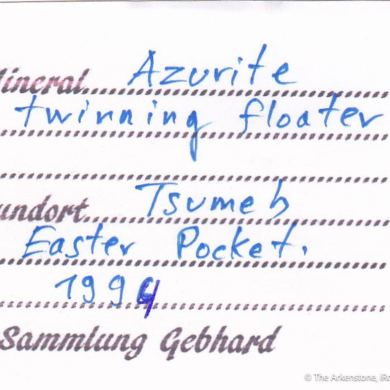 ineral Azurite
twinning floater
undort Tsumeb
Easter Pocket.
1994
Sammlung Gebhard
© The Arkenstone, iRo